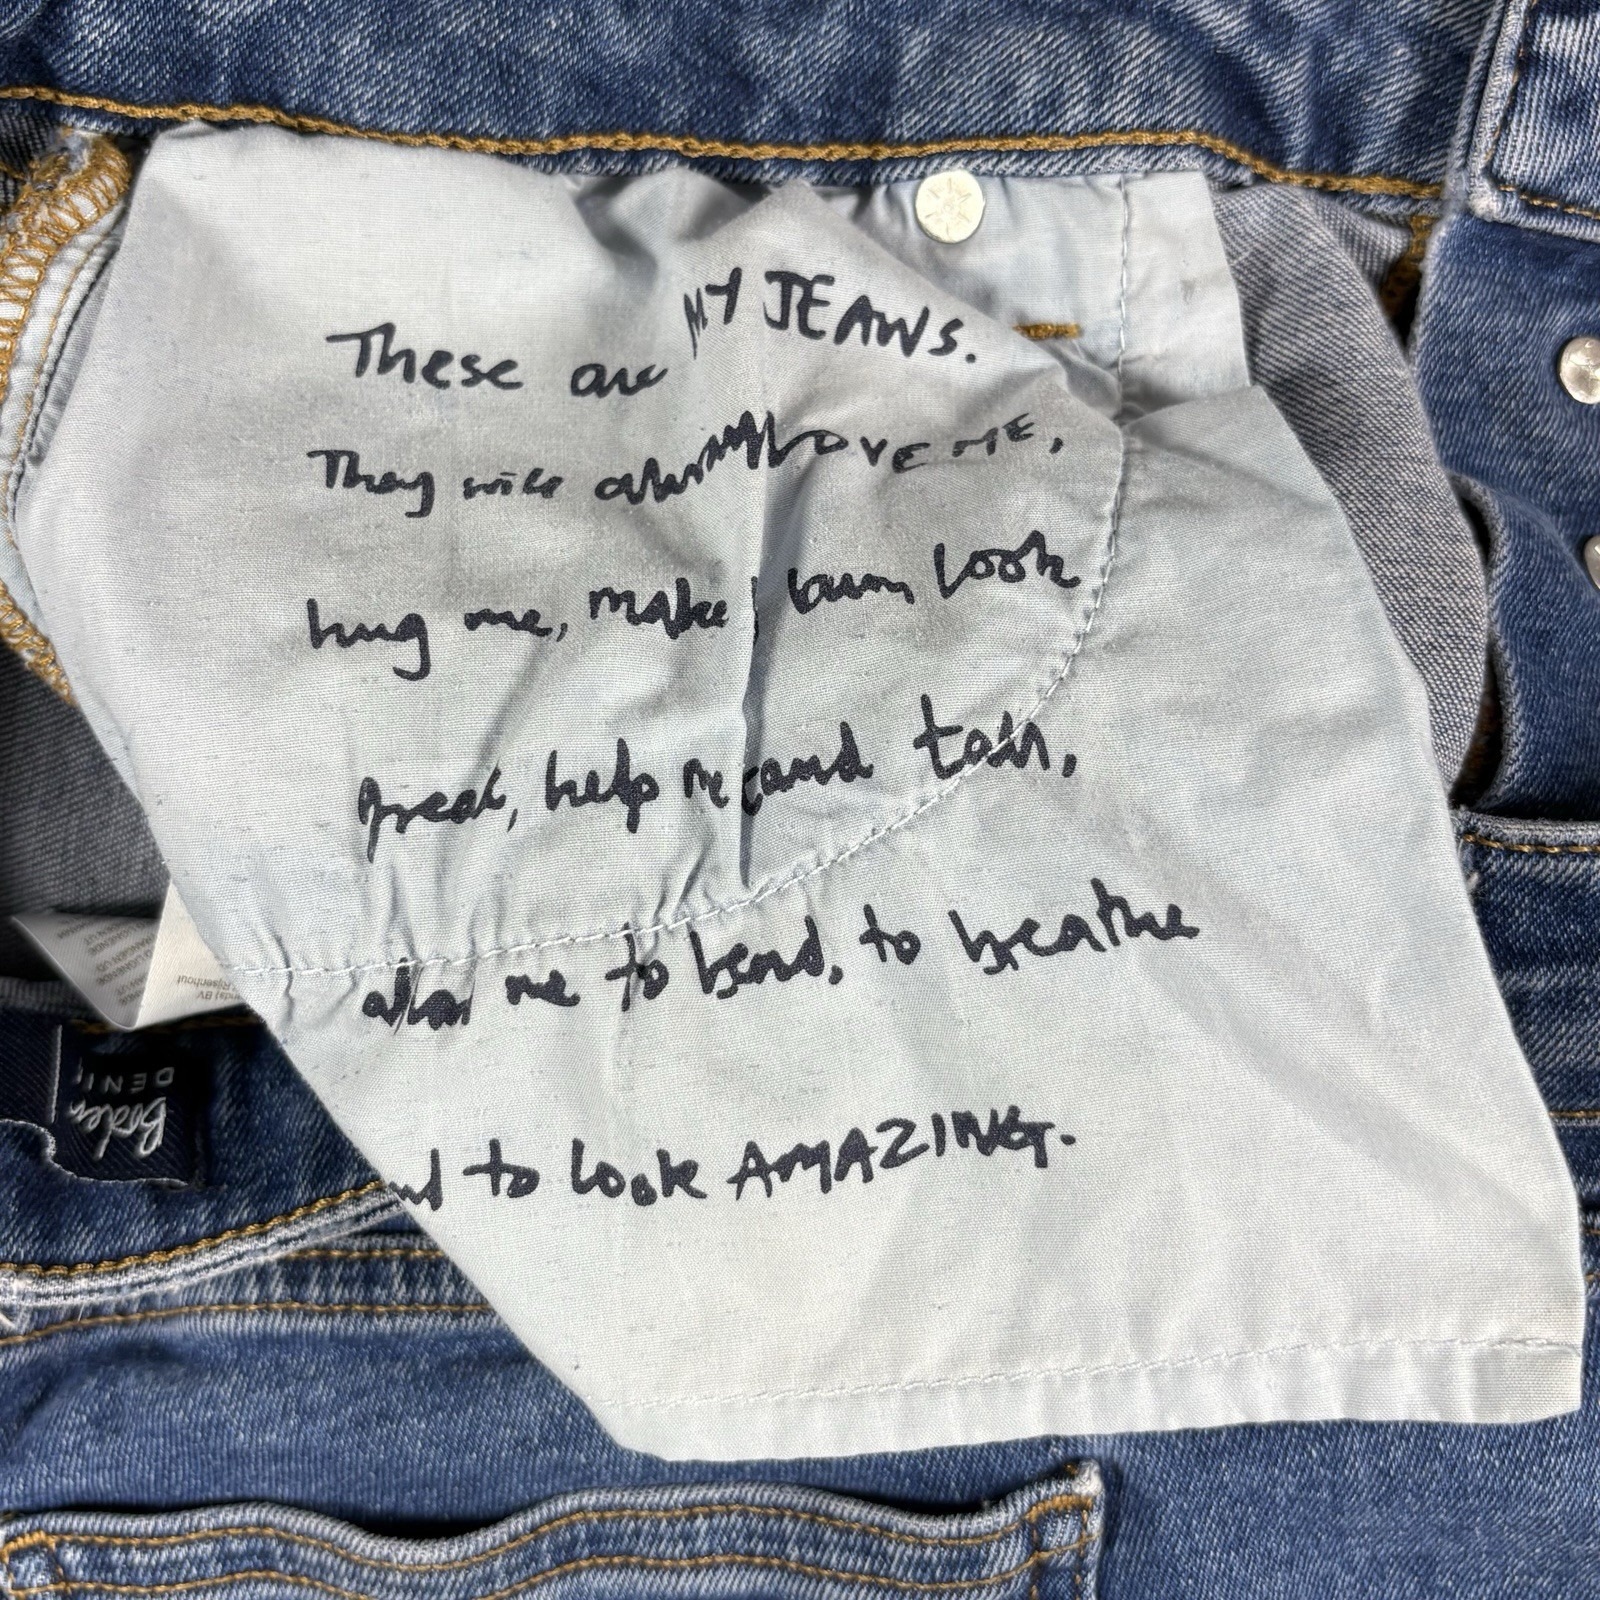 These are MY JEANS.
They will always LOVE ME,
hug me, make bum look
great, help me stand tall,
allow me to bend, to breathe
and to look AMAZING.
Boden
DENI